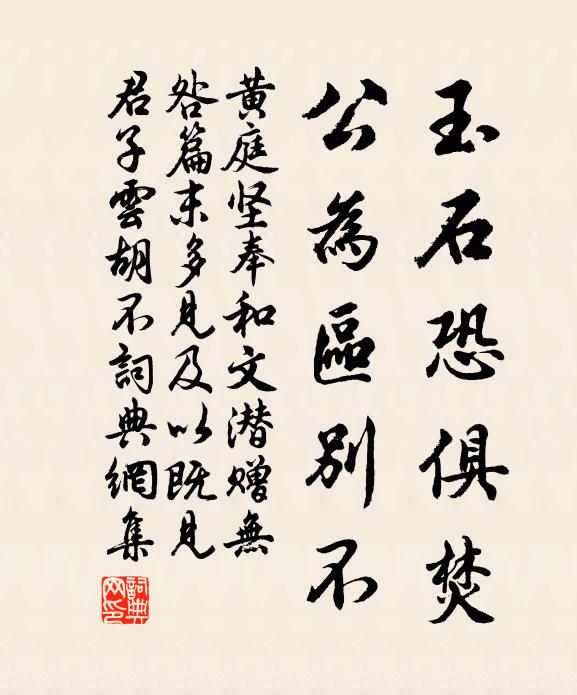 玉石恐俱焚
公為區別不
黄庭坚奉和文潜赠無
咎篇末多見及以既見
君子雲胡不詞典網集
詞典